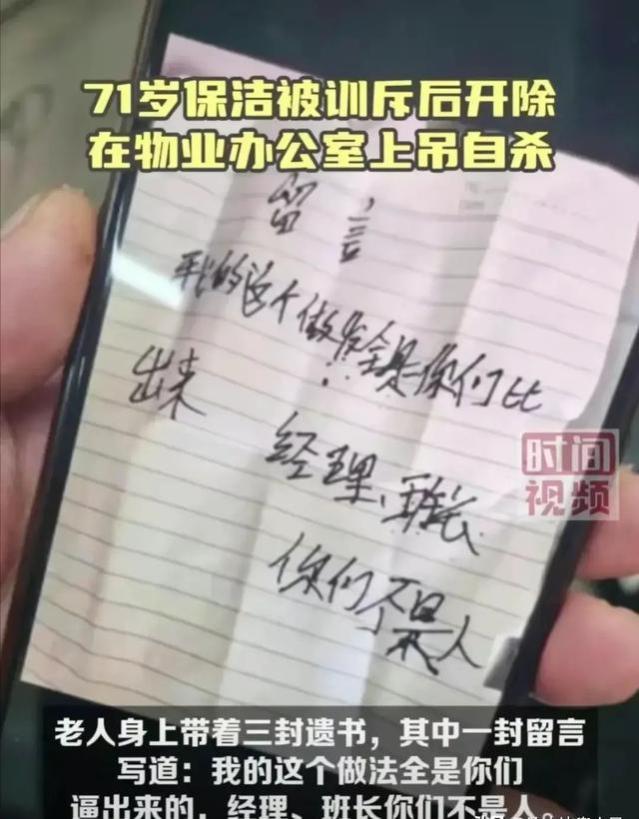 71岁保洁被训斥后开除
在物业办公室上吊自杀
留言
我的这个做法全是你们比
出来
经理、班长
你们不是人
时间
视频
老人身上带着三封遗书，其中一封留言
写道：我的这个做法全是你们
逼出来的，经理、班长你们不是人